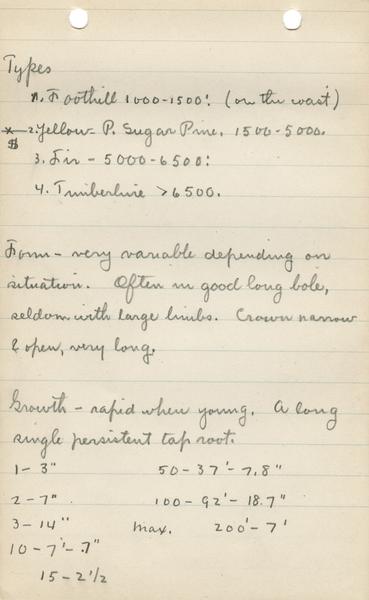 Types
1. Foothill 1000-1500'. (on the west)
x 2. Yellow = P. Sugar Pine. 1500-5000.
$
3. Fir - 5000-6500'.
4. Timberline >6500.
Form - very variable depending on
situation. Often in good long bole,
seldom with large limbs. Crown narrow
& open, very long.
Growth - rapid when young. A long
single persistent tap root.
1 - 3" 50 - 37' - 7.8"
2 - 7" 100 - 92' - 18.7"
3 - 14" max. 200' - 7'
10 - 7' - .7"
15 - 2 1/2